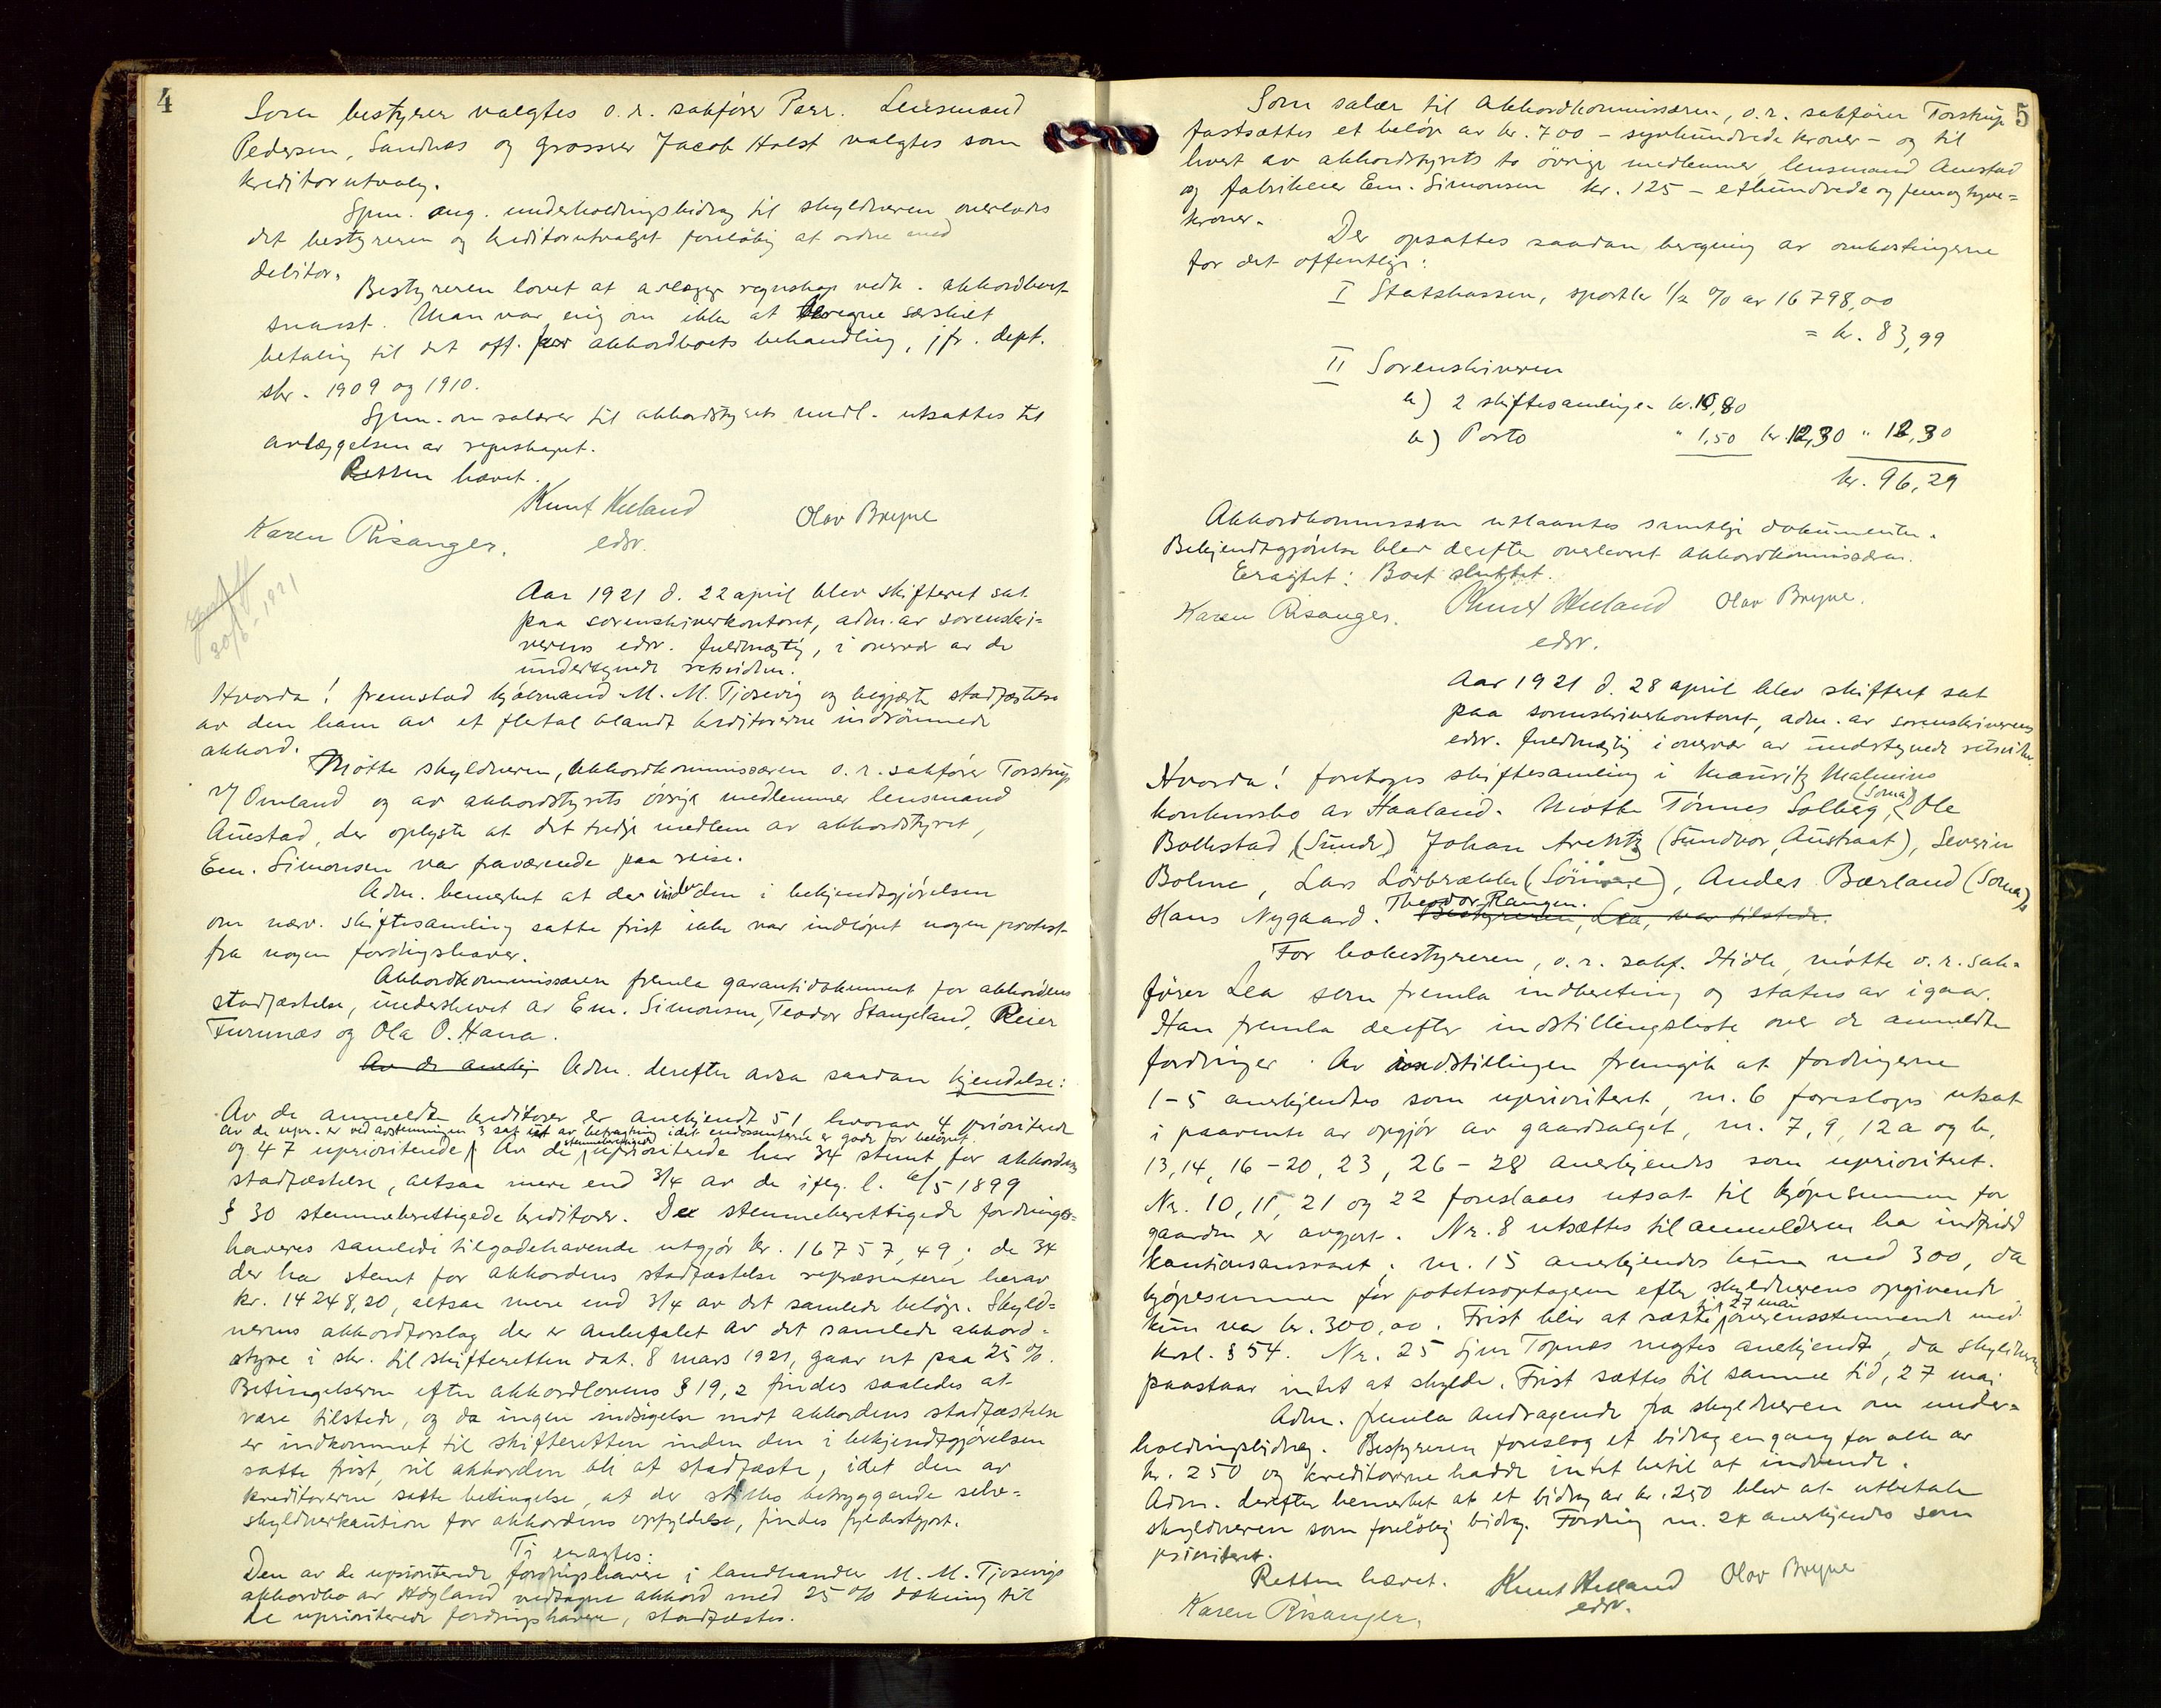 4
Som bestyrer valgtes o.r. sakfører Parr. Lensmand
Pedersen, Sandnæs og grosserer Jacob Holst valgtes som
kreditorutvalg.
Spm. ang. underholdningsbidrag til skyldneren overlodes
det bestyreren og kreditorutvalget foreløbig at ordne med
debitor.
Bestyreren lovet at avlægge regnskap vedk. akkordboet
snarest. Man var enig om ikke at beregne særskilt
betaling til det off. for akkordboets behandling, jfr. dept.
skr. 1909 og 1910.
Spm. om salærer til akkordstyrets medl. utsattes til
avlæggelsen av regnskapet.
Retten hævet.
Knut Heland
edsv.
Olav Bryne
Karen Risanger.
30/6-1921
Aar 1921 d. 22 april blev skifteret sat
paa sorenskriverkontoret, adm. av sorenskri=
verens edsv. fuldmægtig, i overvær av de
undertegnede retsvidner.
Hvorda! fremstod kjøbmand M. M. Tjosevig og begjærte stadfæstelse
av den ham av et flertal blandt kreditorerne indrømmede
akkord.
Møtte skyldneren, akkordkommissæren o.r. sakfører Torstrup
v/ Omland og av akkordstyrets øvrige medlemmer lensmand
Auestad, der oplyste at det tredje medlem av akkordstyret,
Em. Simonsen var fraværende paa reise.
Adm. bemerket at der inden den i bekjendtgjørelsen
om nærv. skiftesamling satte frist ikke var indløpet nogen protest
fra nogen fordringshaver.
Akkordkommissæren fremla garantidokument for akkordens
stadfæstelse, underskrevet av Em. Simonsen, Teodor Stangeland, Reier
Furunæs og Ola O. Hana.
Av de anerkj Adm. derefter avsa saadan kjendelse:
Av de anmeldte kreditorer er anerkjendt 51 hvorav 4 prioriterede
av de upr. er ved avstemningen 3 sat ut av betragtning idet endossenterne er gode for beløpet.
og 47 uprioriterede. Av de stemmeberettigede uprioriterede har 34 stemt for akkordens
stadfæstelse, altsaa mere end 3/4 av de iflg. l. 6/5 1899
§ 30 stemmeberettigede kreditorer. De stemmeberettigede fordrings=
haveres samlede tilgodehavende utgjør kr. 16757,49; de 34
der har stemt for akkordens stadfæstelse repræsenterer herav
kr. 14248,20, altsaa mere end 3/4 av det samlede beløp. Skyld=
nerens akkordforslag der er anbefalet av det samlede akkord=
styre i skr. til skifteretten dat. 8 mars 1921, gaar ut paa 25 %.
Betingelserne efter akkordlovens § 19,2 findes saaledes at
være tilstede, og da ingen indsigelse mot akkordens stadfæstelse
er indkommet til skifteretten inden den i bekjendtgjørelsen
satte frist, vil akkorden bli at stadfæste, idet den av
kreditorerne satte betingelse, at der stilles betryggende selv=
skyldnerkaution for akkordens opfyldelse, findes fyldestgjort.
Ti eragtes:
Den av de uprioriterede fordringshavere i landhandler M. M. Tjosevigs
akkordbo av Høgland vedtagne akkord med 25 % dækning til
de uprioriterede fordringshavere, stadfæstes.
5
Som salær til akkordkommissæren, o.r. sakfører Torstrup
fastsættes et beløp av kr. 700 - syvhundrede kroner - og til
hvert av akkordstyrets to øvrige medlemmer, lensmand Auestad
og fabrikeier Em. Simonsen kr. 125 - ethundrede og femogtyve=
kroner.
Der opsattes saadan beregning av omkostningerne
for det offentlige:
I Statskassen, sportler 1/2 % av 16798,00
= kr. 83,99
II Sorenskriveren
a) 2 skiftesamlinger kr. 10,80
b) Porto " 1,50 kr. 12,30 " 12,30
kr. 96,29
Akkordkommissæren utlaantes samtlige dokumenter.
Bekjendtgjørelse blev derefter overlevert akkordkommissæren.
Eragtet: Boet sluttet.
Karen Risanger. Knut Heland Olav Bryne.
edsv.
Aar 1921 d. 28 april blev skifteret sat
paa sorenskriverkontoret, adm. av sorenskriverens
edsv. fuldmægtig i overvær av undertegnede retsvidner.
Hvorda! foretoges skiftesamling i Mauritz Malmins
konkursbo av Haaland. Møtte Tønnes Solberg, (Soma) Ole
Bolkstad (Sunde) Johan Arentz (Sundvor, Austraat), Severin
Bolme, Lars Lørbrække (Sørnæs), Anders Bærland (Soma),
Hans Nygaard. Theodor Rangen. Bestyreren, Lea, var tilstede.
For bobestyreren, o.r. sakf. Hidle, møtte o.r. sak=
fører Lea som fremla indberetning og status av igaar.
Han fremla derefter indstillingsliste over de anmeldte
fordringer. Av indstillingen fremgik at fordringerne
1-5 anerkjendtes som uprioritert, nr. 6 foresloges utsat
i paavente av opgjør av gaardsalget, nr. 7, 9, 12a og b,
13, 14, 16-20, 23, 26-28 anerkjendes som uprioritert.
Nr. 10, 11, 21 og 22 foreslaaes utsat til kjøpesummen for
gaarden er avgjort. Nr. 8 utsættes til anmelderen har indfridd
kautionsansvaret. nr. 15 anerkjendes kun med 300, da
kjøpesummen for potetesoptageren efter skyldnerens opgivende
kun var kr. 300,00. Frist blir at sætte til 27 mai overensstemmende med
krsl. § 54. Nr. 25 Sjur Topnæs negtes anerkjendt, da skyldneren
paastaar intet at skylde. Frist sættes til samme tid, 27 mai
Adm. fremla andragende fra skyldneren om under=
holdningsbidrag. Bestyreren foreslog et bidrag engang for alle av
kr. 250 og kreditorerne hadde intet hertil at indvende.
Adm. derefter bemerket at et bidrag av kr. 250 blev at utbetale
skyldneren som foreløbig bidrag. Fordring nr. 24 anerkjendes som
prioritert.
Retten hævet. Knut Heland Olav Bryne
edsv.
Karen Risanger.